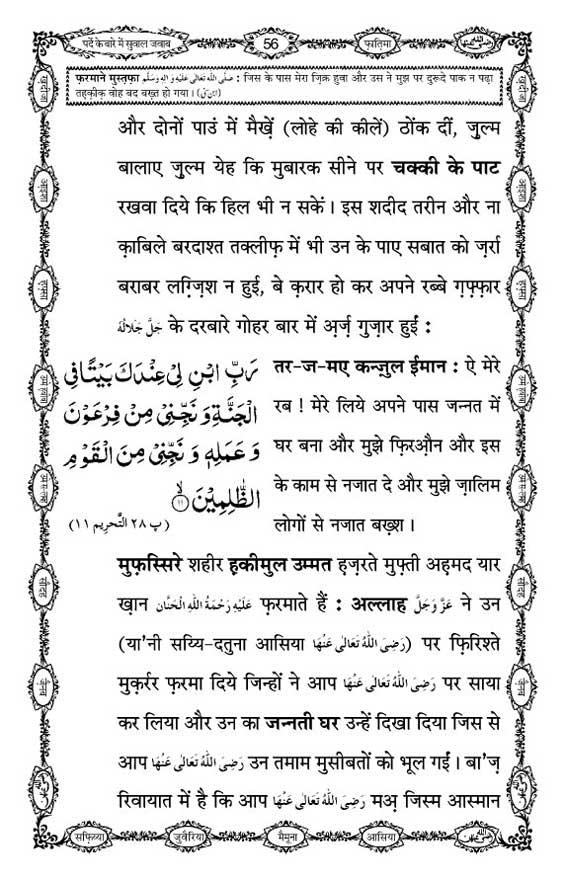 पर्दे के बारे में सुवाल जवाब
56
फ़ातिमा
फ़रमाने मुस्तफ़ा صَلَّى اللّٰهُ تَعَالٰى عَلَيْهِ وَاٰلِهٖ وَسَلَّم : जिस के पास मेरा ज़िक्र हुवा और उस ने मुझ पर दुरूदे पाक न पढ़ा
तहक़ीक़ वोह बद बख़्त हो गया ।
और दोनों पाउं में मैखें़ (लोहे की कीलें) ठोंक दीं, ज़ुल्म
बालाए ज़ुल्म येह कि मुबारक सीने पर चक्की के पाट
रखवा दिये कि हिल भी न सकें । इस शदीद तरीन और ना
क़ाबिले बरदाश्त तक्लीफ़ में भी उन के पाए सबात को ज़र्रा
बराबर लग़्ज़िश न हुई, बे क़रार हो कर अपने रब्बे ग़फ़्फ़ार
جَلَّ جَلَالُهٗ के दरबारे गोहर बार में अर्ज़ गुज़ार हुईं :
رَبِّ ابْنِ لِىْ عِنْدَكَ بَيْتًا فِى
الْجَنَّةِ وَ نَجِّنِىْ مِنْ فِرْعَوْنَ
وَ عَمَلِهٖ وَ نَجِّنِىْ مِنَ الْقَوْمِ
الظّٰلِمِيْنَ ۙ﴿۱۱﴾
(پ ۲۸ التَّحْرِيْم ۱۱)
तर-ज-मए कन्ज़ुल ईमान : ऐ मेरे
रब ! मेरे लिये अपने पास जन्नत में
घर बना और मुझे फ़िरऔन और इस
के काम से नजात दे और मुझे ज़ालिम
लोगों से नजात बख़्श ।
मुफ़स्सिरे शहीर हकीमुल उम्मत हज़रते मुफ़्ती अहमद यार
ख़ान عَلَيْهِ رَحْمَةُ اللّٰهِ الْحَنَّان फ़रमाते हैं : अल्लाह عَزَّوَجَلَّ ने उन
(या'नी सय्यि-दतुना आसिया رَضِىَ اللّٰهُ تَعَالٰى عَنْهَا) पर फ़िरिश्ते
मुक़र्रर फ़रमा दिये जिन्हों ने आप رَضِىَ اللّٰهُ تَعَالٰى عَنْهَا पर साया
कर लिया और उन का जन्नती घर उन्हें दिखा दिया जिस से
आप رَضِىَ اللّٰهُ تَعَالٰى عَنْهَا उन तमाम मुसीबतों को भूल गईं । बा'ज़
रिवायात में है कि आप رَضِىَ اللّٰهُ تَعَالٰى عَنْهَا मअ़ जिस्म आस्मान
सफ़िय्या
जुवैरिया
मैमूना
आसिया